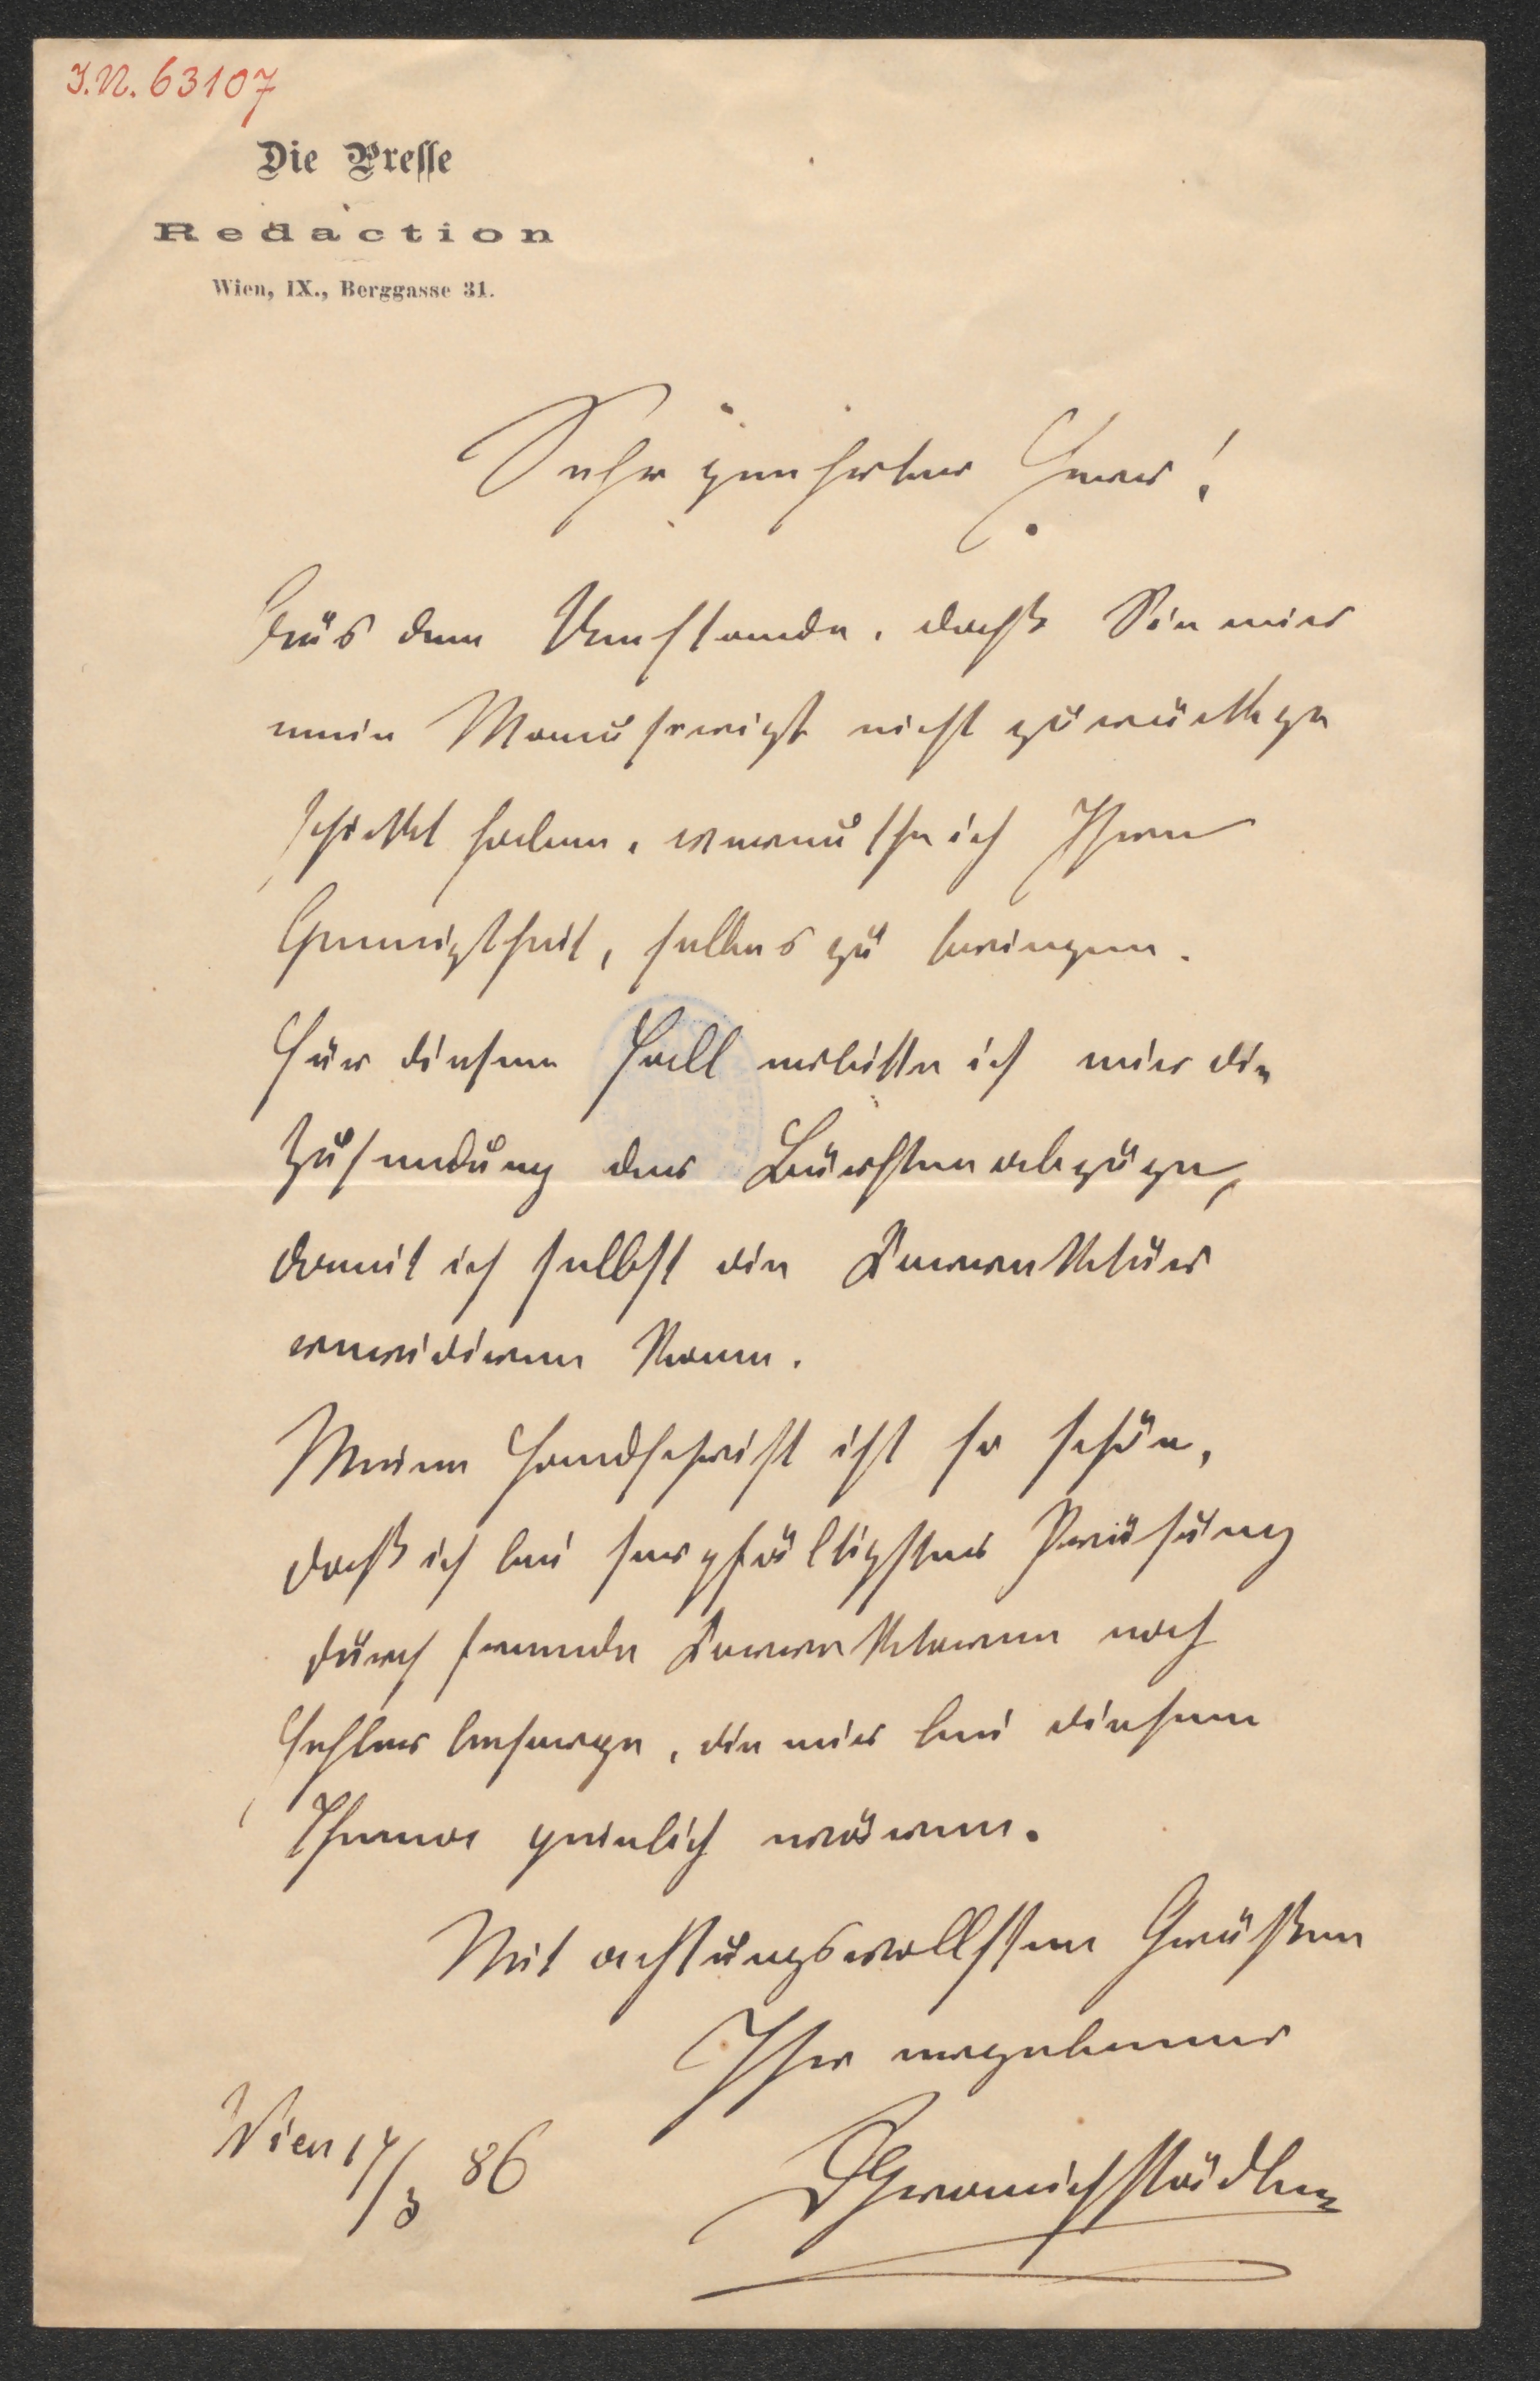 I.N. 63107
Die Presse
Redaction
Wien, IX., Berggasse 31.
Sehr geehrter Herr!
Aus dem Umstande, daß Sie mir
mein Manuscript nicht zurückge
schickt haben, vermuthe ich Ihre
Geneigtheit, selbes zu bringen.
Für diesen Fall erbitte ich mir die
Zusendung der Bürstenabzüge,
damit ich selbst die Korrektur
revidiren kann.
Meine Handschrift ist so schön,
daß ich bei sorgfältigster Prüfung
durch fremde Korrektoren noch
Fehler besorge, die mir bei diesem
Thema peinlich wären.
Mit achtungsvollsten Grüßen
Ihr ergebener
Wien 14/3 86